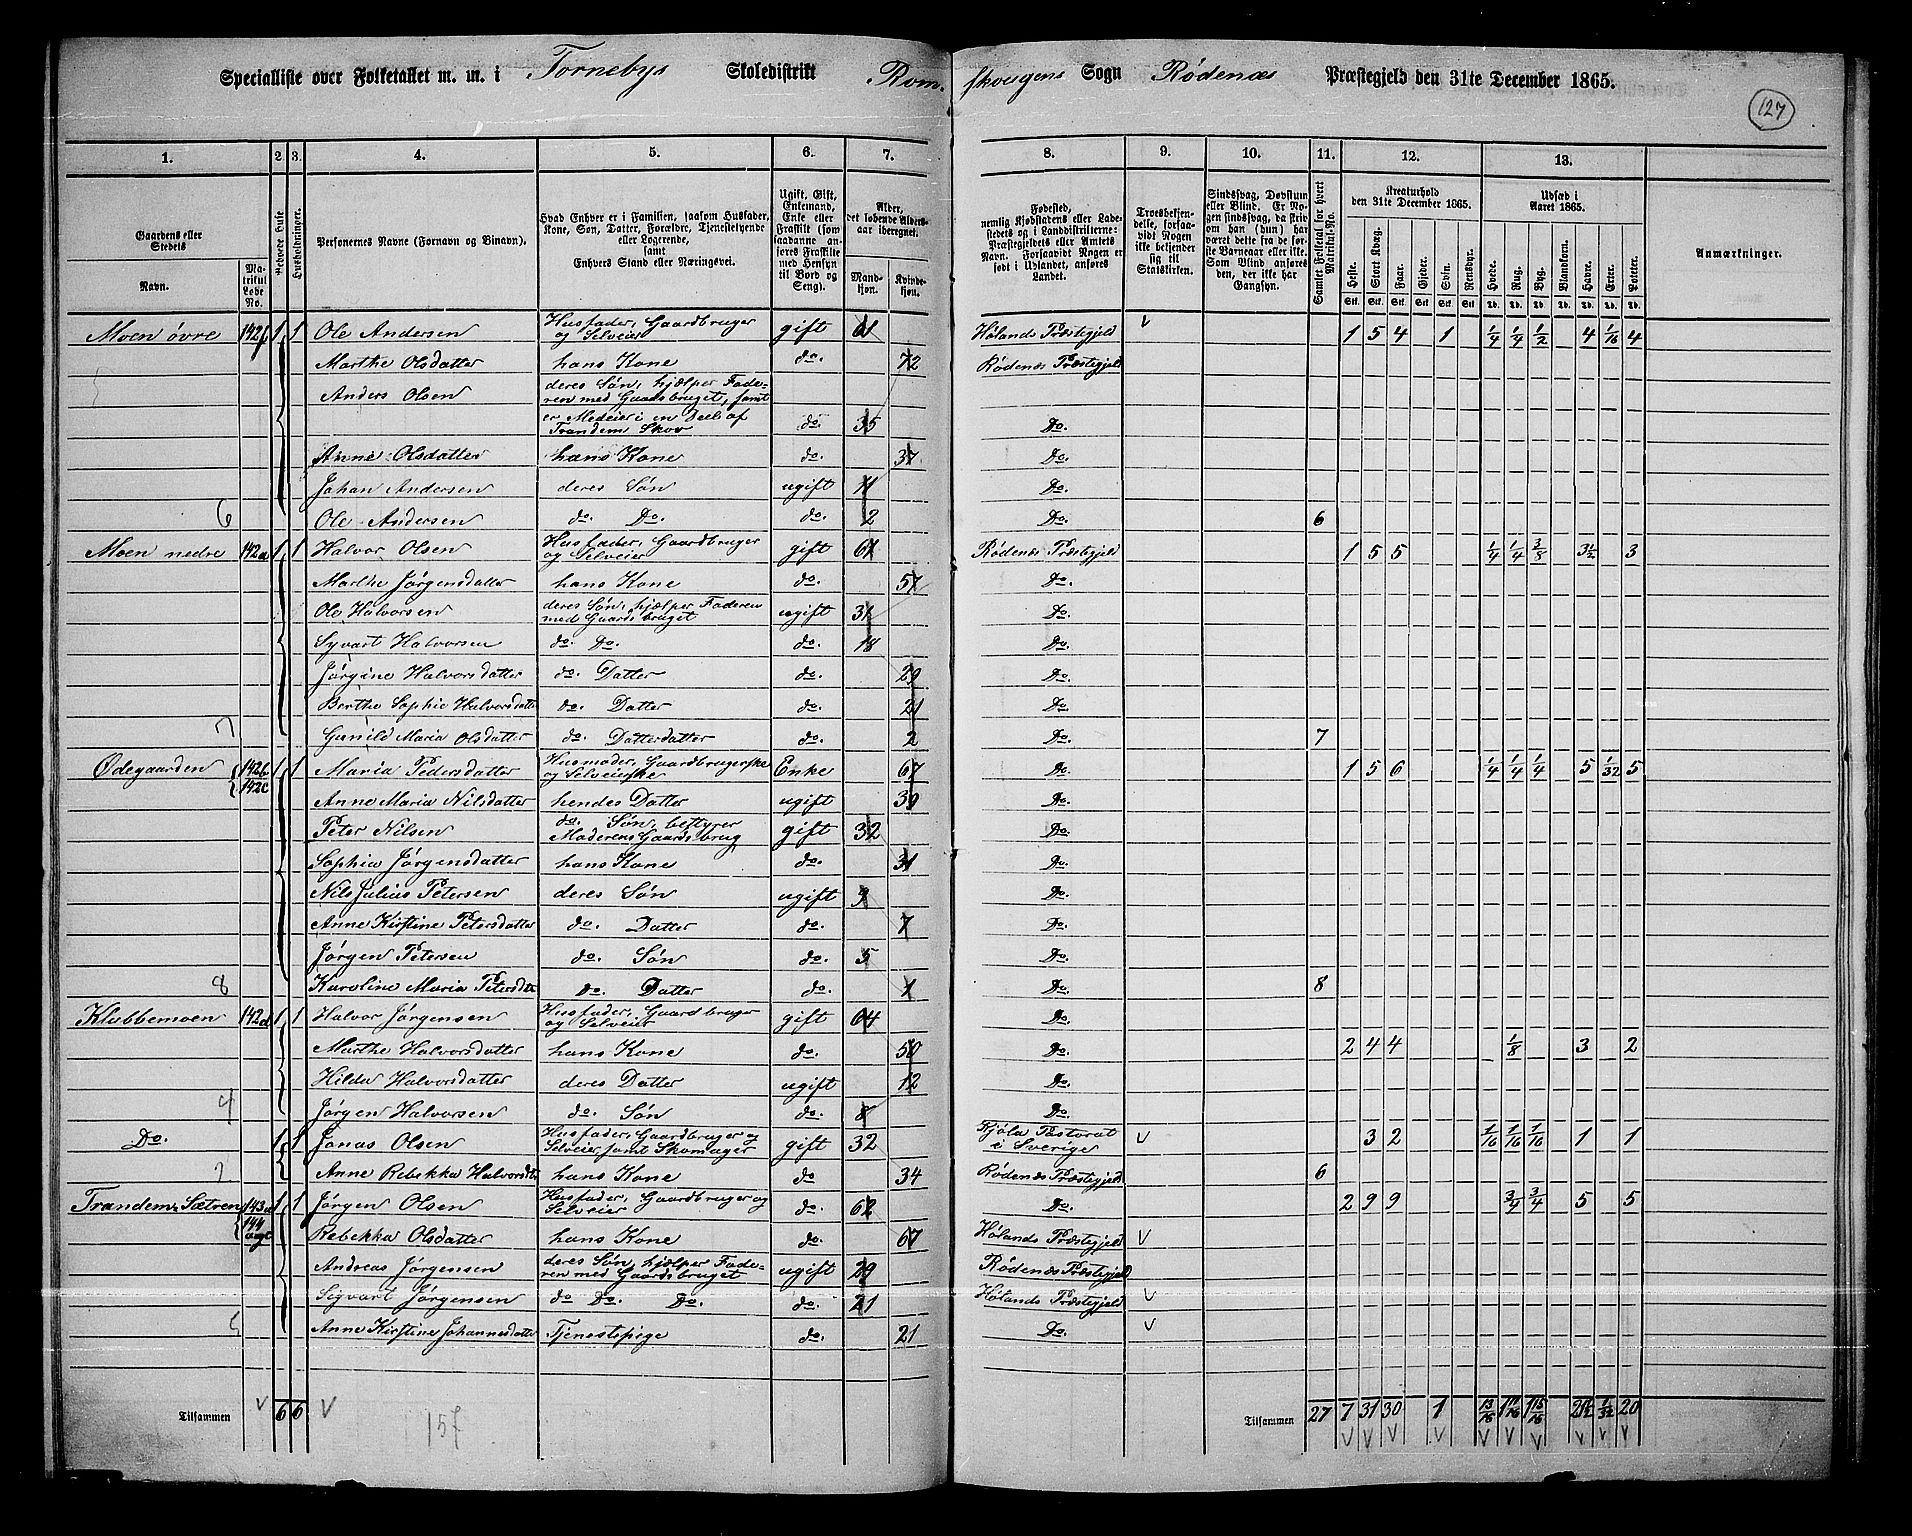 Specialliste over Folketallet m. m. i Tornebys Skoledistrikt Rom-skougens Sogn Rødenæs Præstegjeld den 31te December 1865.
127
1. 2. 3. 4. 5. 6. 7. 8. 9. 10. 11. 12. 13.
Gaardens eller Stedets
Navn.
Matrikul Løbe No.
Beboede Huse
Husholdninger.
Personernes Navne (Fornavn og Binavn).
Hvad Enhver er i Familien, saasom Husfader, Kone, Søn, Datter, Forældre, Tjenestetyende eller Logerende, samt Enhvers Stand eller Næringsvei.
Ugift, Gift, Enkemand, Enke eller Fraskilt (som saadanne anføres Fraskilte med Hensyn til Bord og Seng).
Alder, det løbende Aldersaar iberegnet.
Mandkjøn.
Kvindekjøn.
Fødested, nemlig Kjøbstadens eller Ladestedets og i Landdistrikterne: Præstegjeldets eller Amtets Navn. Forsaavidt Nogen er født i Udlandet, anføres Landet.
Troesbekjendelse, forsaavidt Nogen ikke bekjender sig til Statskirken.
Sindssvag, Døvstum eller Blind. Er Nogen sindssvag, da skrives om han (hun) har været dette fra de første Barneaar eller ikke. Som Blind anføres den, der ikke har Gangsyn.
Samlet Folketal for hvert Matrikul-No.
Kreaturhold den 31te December 1865.
Heste. Stort Kvæg. Faar. Gjeder. Svin. Rensdyr.
Stk. Stk. Stk. Stk. Stk. Stk.
Udsæd i Aaret 1865.
Hvede. Rug. Byg. Blandkorn. Havre. Erter. Poteter.
Td. Td. Td. Td. Td. Td. Td.
Anmærkninger.
Moen øvre 142f 1 1 Ole Andersen Husfader, Gaardbruger og Selveier gift 61 Hølands Præstegjeld 1 5 4 1 1/4 1/4 1/2 4 1/16 4
Marthe Olsdatter hans Kone do. 72 Rødenæs Præstegjeld
Anders Olsen deres Søn, hjælper Faderen med Gaardsbruget, samt er Medeier i en Deel af Trandem Skov do. 35 Do.
Anne Olsdatter hans Kone do. 37 Do.
Johan Andersen deres Søn ugift 11 Do.
6 Ole Andersen do. Do. do. 2 Do. 6
Moen nedre 142a 1 1 Halvor Olsen Husfader, Gaardbruger og Selveier gift 61 Rødenæs Præstegjeld 1 5 5 1/4 1/4 3/8 3 1/2 3
Marthe Jørgensdatter hans Kone do. 57 Do.
Ole Halvorsen deres Søn, hjælper Faderen med Gaardsbruget ugift 31 Do.
Syvart Halvorsen do. Do. do. 18 Do.
Jørgine Halvorsdatter do. Datter do. 29 Do.
Berthe Sophie Halvorsdatter do. Datter do. 21 Do.
7 Gunild Maria Olsdatter do. Datterdatter do. 2 Do. 7
Ødegaarden 142b 142c 1 1 Maria Pedersdatter Husmoder, Gaardbrugerske og Selveierske Enke 67 Do. 1 5 6 1/4 1/4 1/4 5 1/32 5
Anne Maria Nilsdatter hendes Datter ugift 39 Do.
Peter Nilsen do. Søn, bestyrer Moderens Gaardsbrug gift 32 Do.
Sophia Jørgensdatter hans Kone do. 31 Do.
Nils Julius Petersen deres Søn ugift 9 Do.
Anne Kirstine Petersdatter do. Datter do. 7 Do.
Jørgen Petersen do. Søn do. 5 Do.
8 Karoline Maria Petersdat do. Datter do. 1 Do. 8
Klobbemoen 142d 1 1 Halvor Jørgensen Husfader, Gaardbruger og Selveier gift 64 Do.
Marthe Halvorsdatter hans Kone do. 50 Do. 2 4 4 1/8 3 2
Hilda Halvorsdatter deres Datter ugift 12 Do.
4 Jørgen Halvorsen do. Søn do. 8 Do.
Do. 1 1 Jonas Olsen Husfader, Gaardbruger og Selveier, samt Skomager gift 32 Fjöla Pastorat i Sverige 3 2 1/16 1/16 1/16 1 1
2 Anne Rebekka Halvorsdtr hans Kone do 34 Rødenæs Præstegjeld 6
Trandem, Sætren 143a 144 1 1 Jørgen Olsen Husfader, Gaardbruger og Selveier do. 62 Do. 2 9 9 3/4 3/4 5 5
Rebekka Olsdatter hans Kone do. 67 Hølands Præstegjeld
Andreas Jørgensen deres Søn, hjælper Faderen med Gaardsbruget ugift 29 Rødenæs Præstegjeld
Sigvart Jørgensen do Do. Do. do. 21 Hølands Præstegjeld
5 Anne Kirstine Johannesdatter Tjenestepige do. 21 Do.
Tilsammen 6 6 157 Tilsammen 27 7 31 30 1 13/16 1 11/16 1 15/16 21 1/2 20